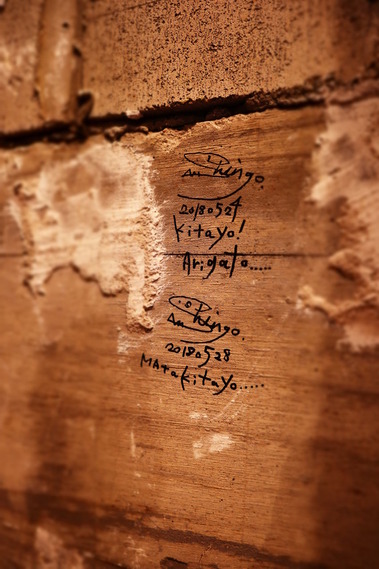 Shingo.
20180527
kitayo!
Arigato.....
Shingo.
20180528
MATAkitayo.....